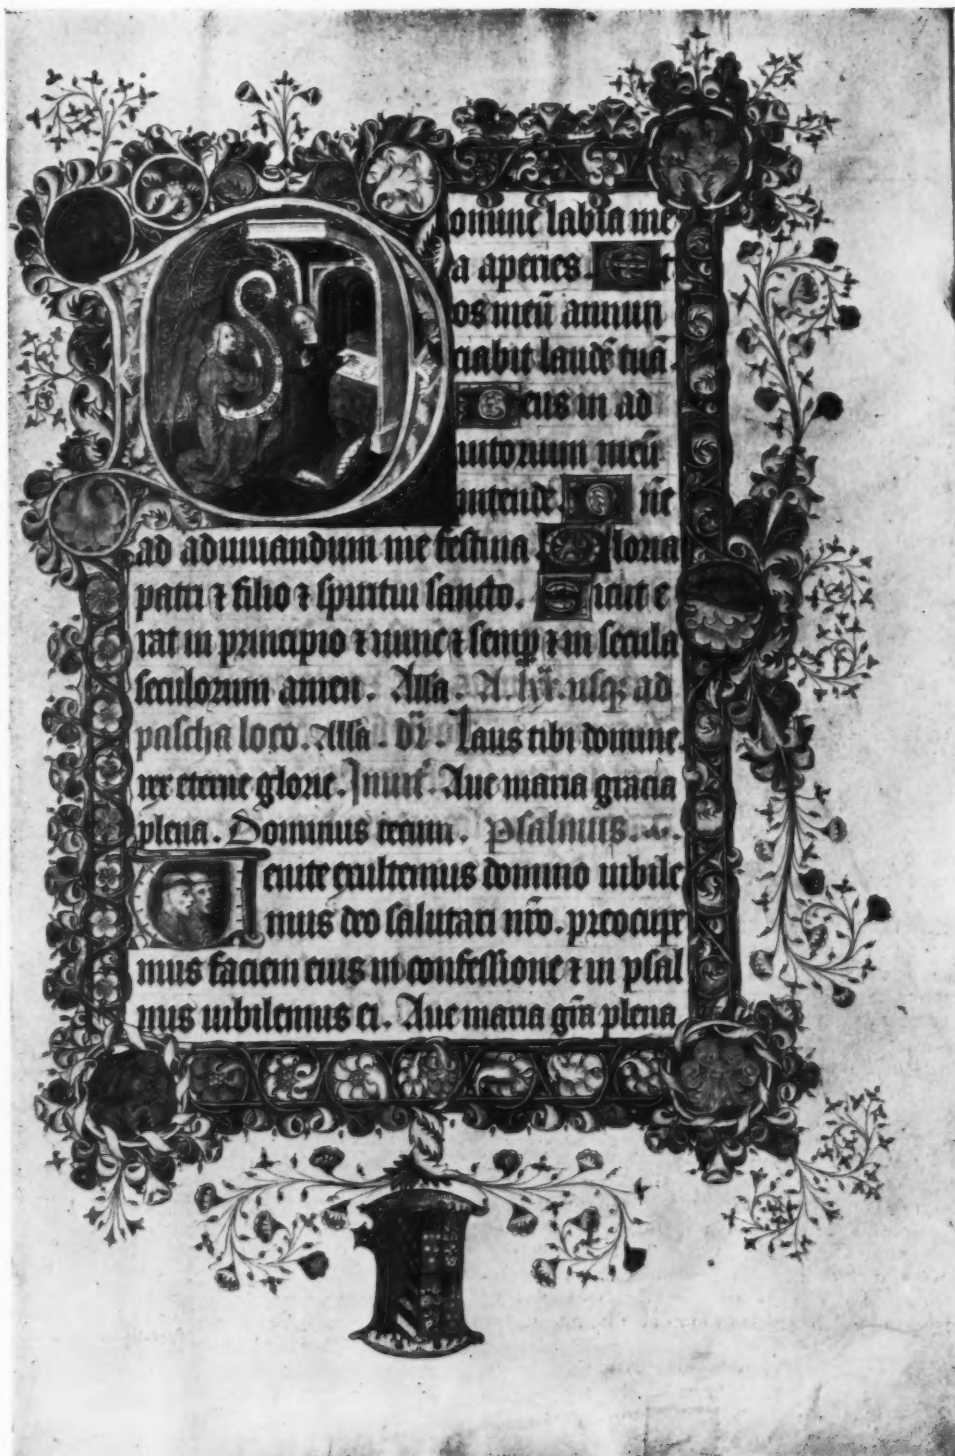 Domine labia me
a aperies. Et
os meū annun
ciabit laudē tuā.
Deus in ad
iutorium meū
intende. Dn̄e
ad adiuuandum me festina Gloria
patri ⁊ filio ⁊ spiritui sancto. Sicut e
rat in principio ⁊ nunc ⁊ semp̄ ⁊ in secula
seculorum amen. Alła. A. lxx. usq; ad
pascha loco. Alła dr̄. Laus tibi domine.
rex eterne glorie. Inuit̄. Aue maria gracia
plena. Dominus tecum. Psalmus.
Uenite exultemus domino iubile
mus deo salutari nr̄o. preocupe
mus faciem eius in confessione ⁊ in psal
mus iubilemus ei. Aue maria gr̄a plena